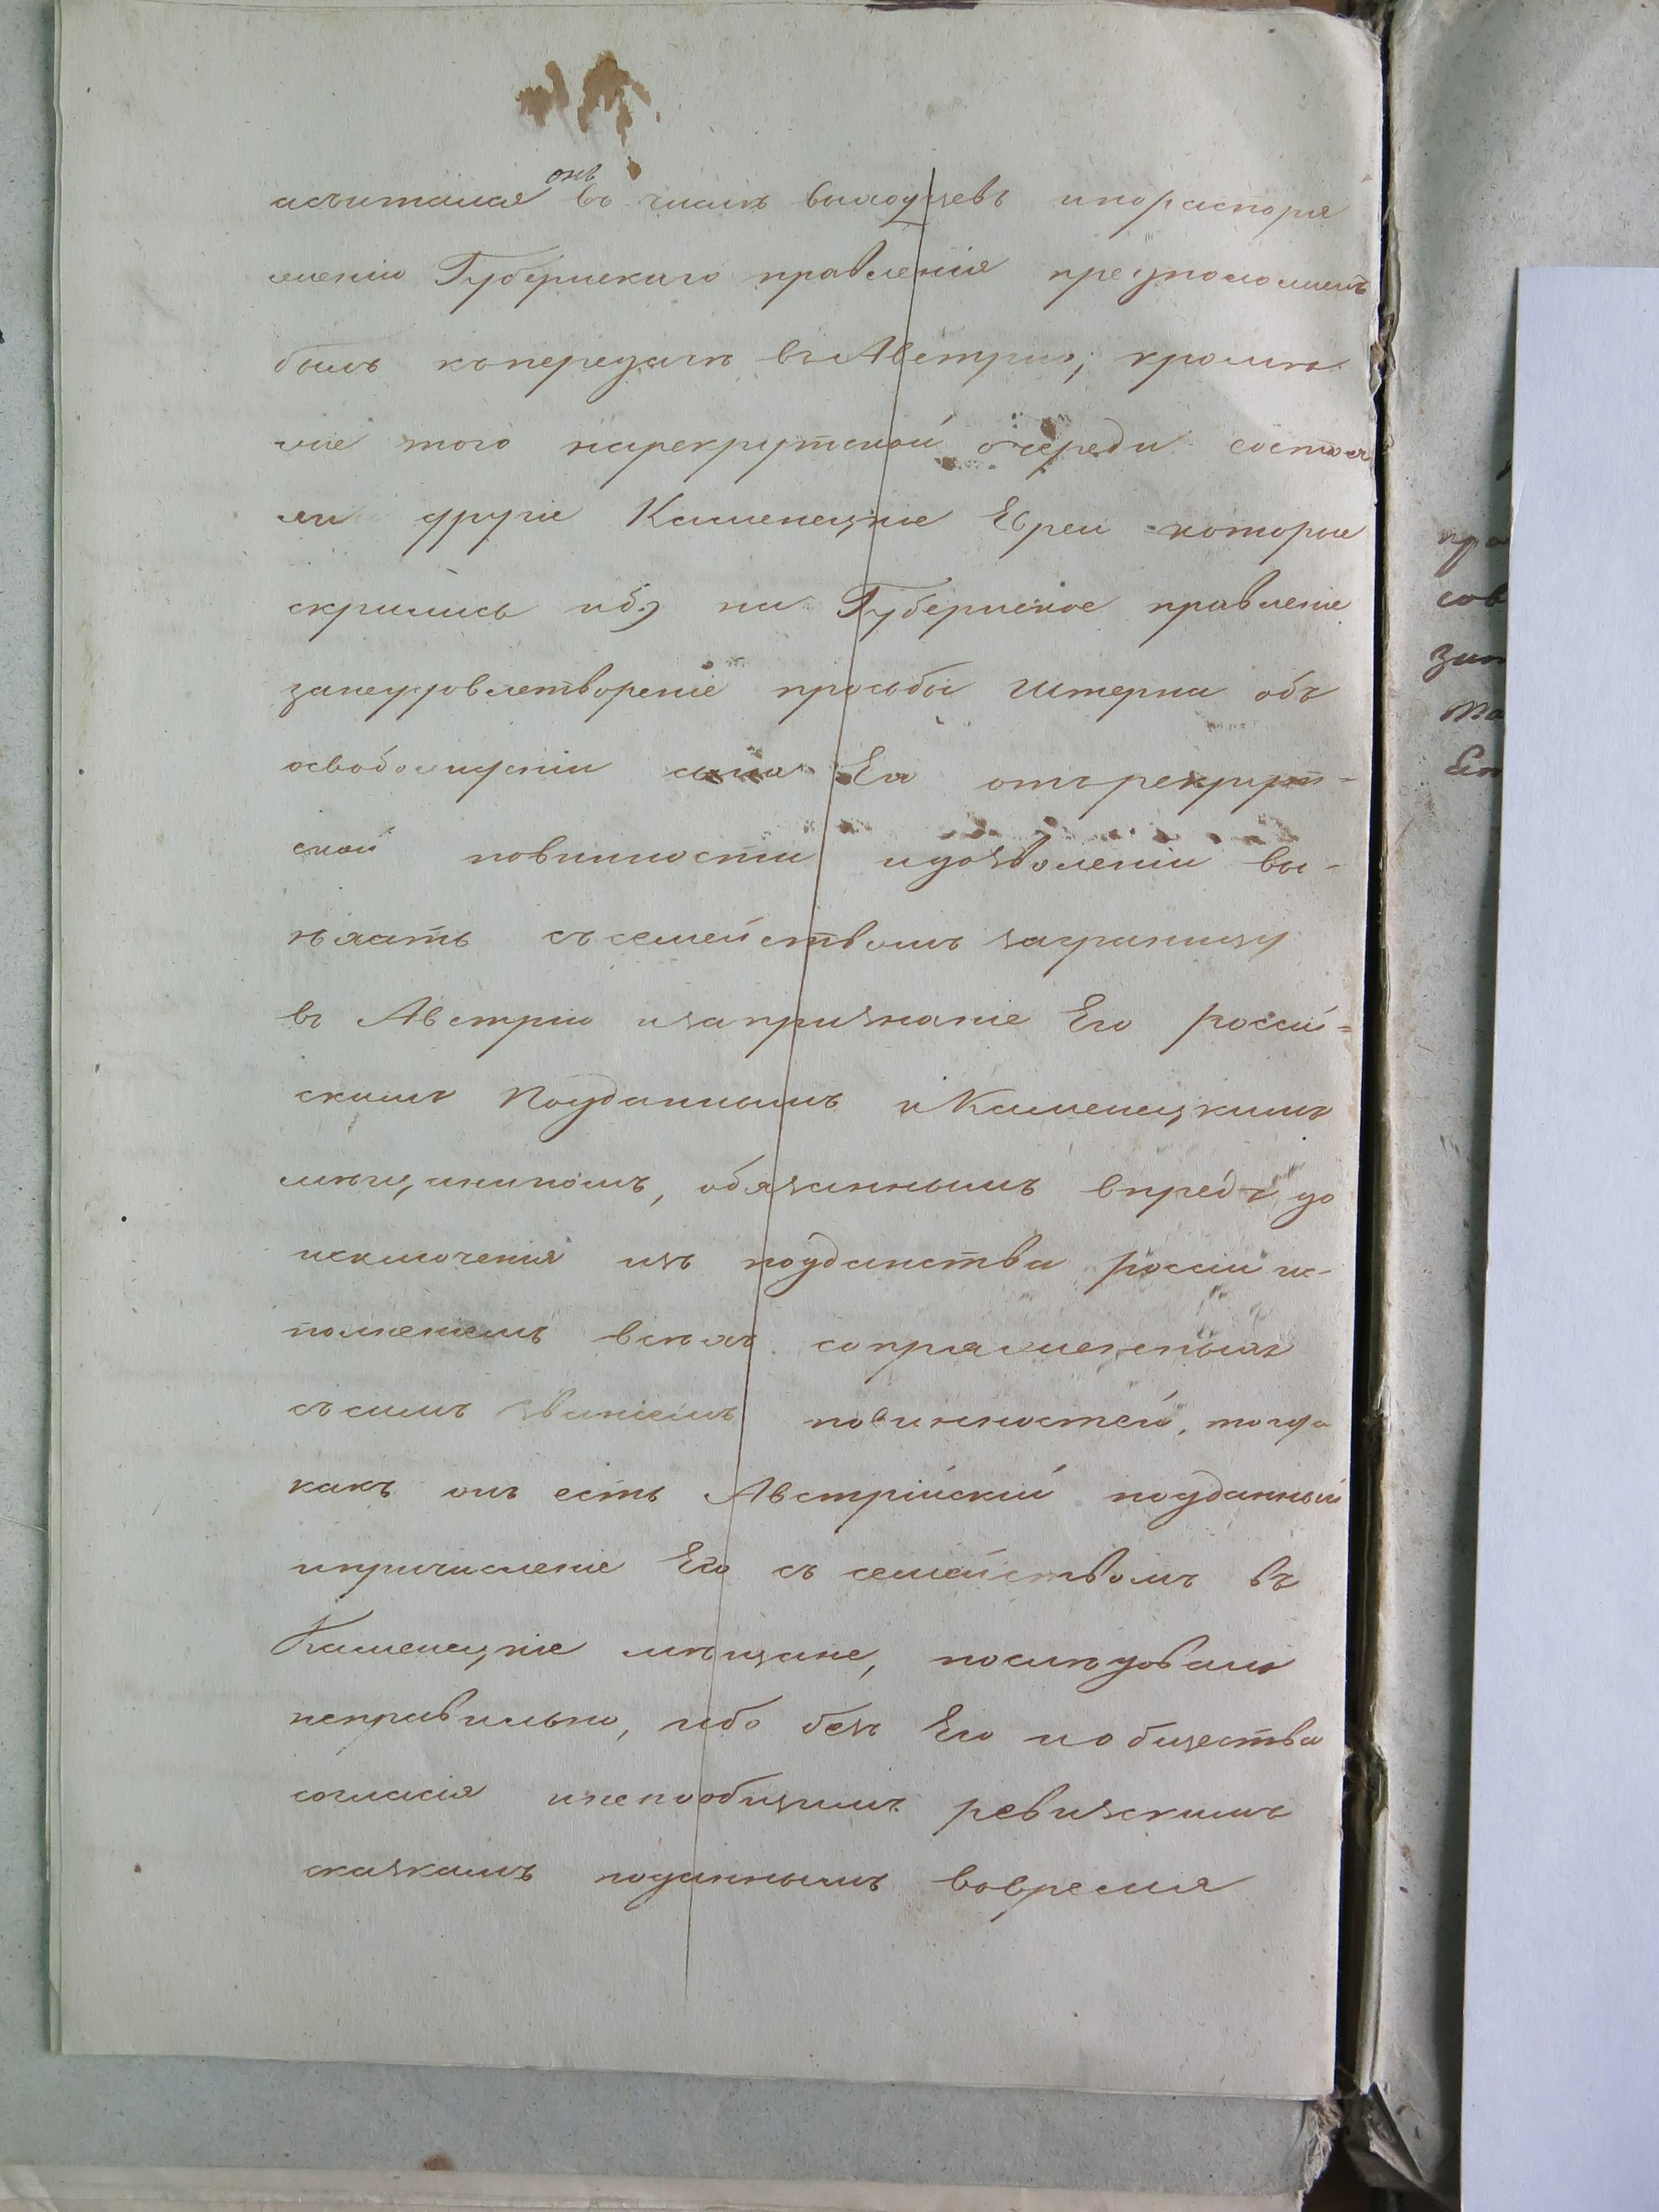 асчитался онъ во числѣ выходцевъ ипораспоря
женію Губернскаго правленія предположенъ
былъ къпередачѣ въАвстрію, кромѣ
же того нарекрутской очереди состоя
ли другіе Каменецкіе Евреи которые
скрылись иб) на Губернское правленіе
занеудовлетвореніе просьбы Штерна объ
освобожденіи сына Его отърекрут-
ской повинности идозволеніи вы-
ѣхать съсемействомъ заграницу
въ Австрію изапризнаніе Его россій=
скимъ Подданнымъ иКаменецкимъ
мѣщаниномъ, обязаннымъ впредь до
исключенія изъ подданства россіи ис-
полненіемъ всѣхъ сопряженныхъ
съсимъ званіемъ повинностей, тогда
какъ онъ есть Австрійскій подданный
ипричисленіе Его съ семействомъ въ
Каменецкіе мѣщане, послѣдовало
неправильно, ибо безъ Его иобщества
согласія инепообщимъ ревизскимъ
сказкамъ поданнымъ вовремя
пра
сов
зак
Ен